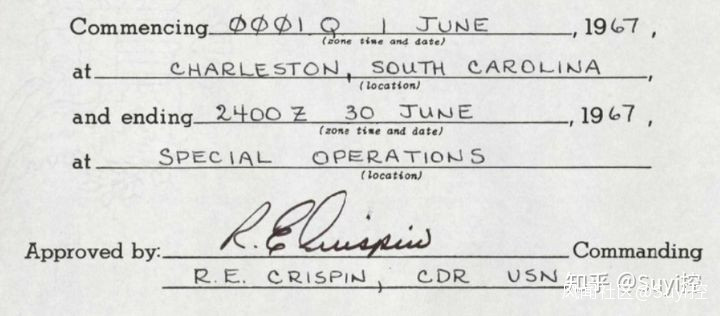 Commencing ØØØ1 Q 1 JUNE, 1967,
(zone time and date)
at CHARLESTON, SOUTH CAROLINA,
(location)
and ending 2400 Z 30 JUNE, 1967,
(zone time and date)
at SPECIAL OPERATIONS
(location)
R. E. Crispin
Approved by: Commanding
R. E. CRISPIN, CDR USN
知乎 @Suyi控